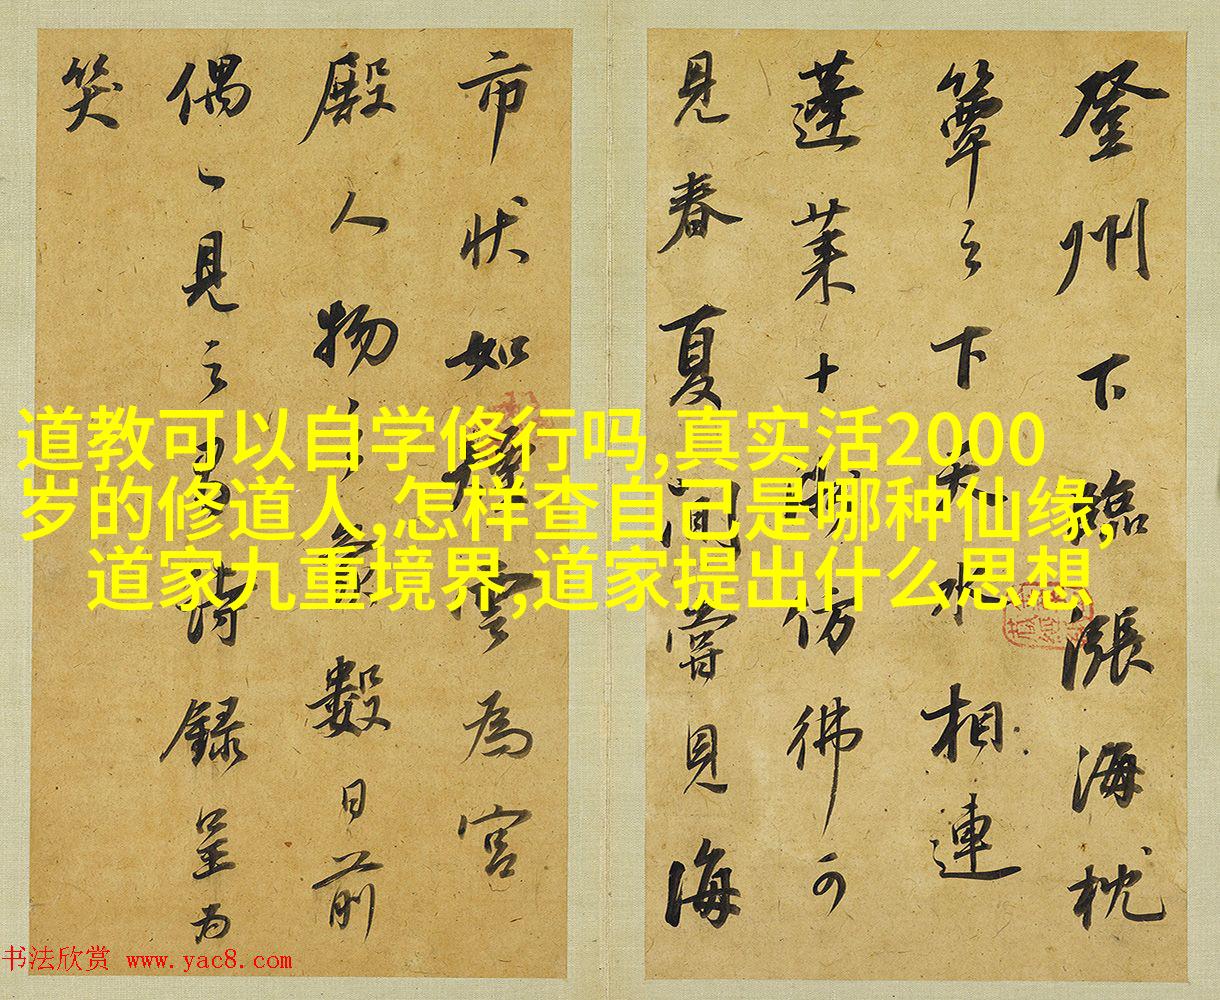 登州下臨漲海枕
簟之下天水相連
蓬莱十洲仿彿可
見春夏間嘗見海
市状如煙雲為宮
殿人物之象數日前
偶一見之詩録呈為
笑
道教可以自学修行吗,真实活2000
岁的修道人,怎样查自己是哪种仙缘,
道家九重境界,道家提出什么思想
书法欣赏 www.yac8.com